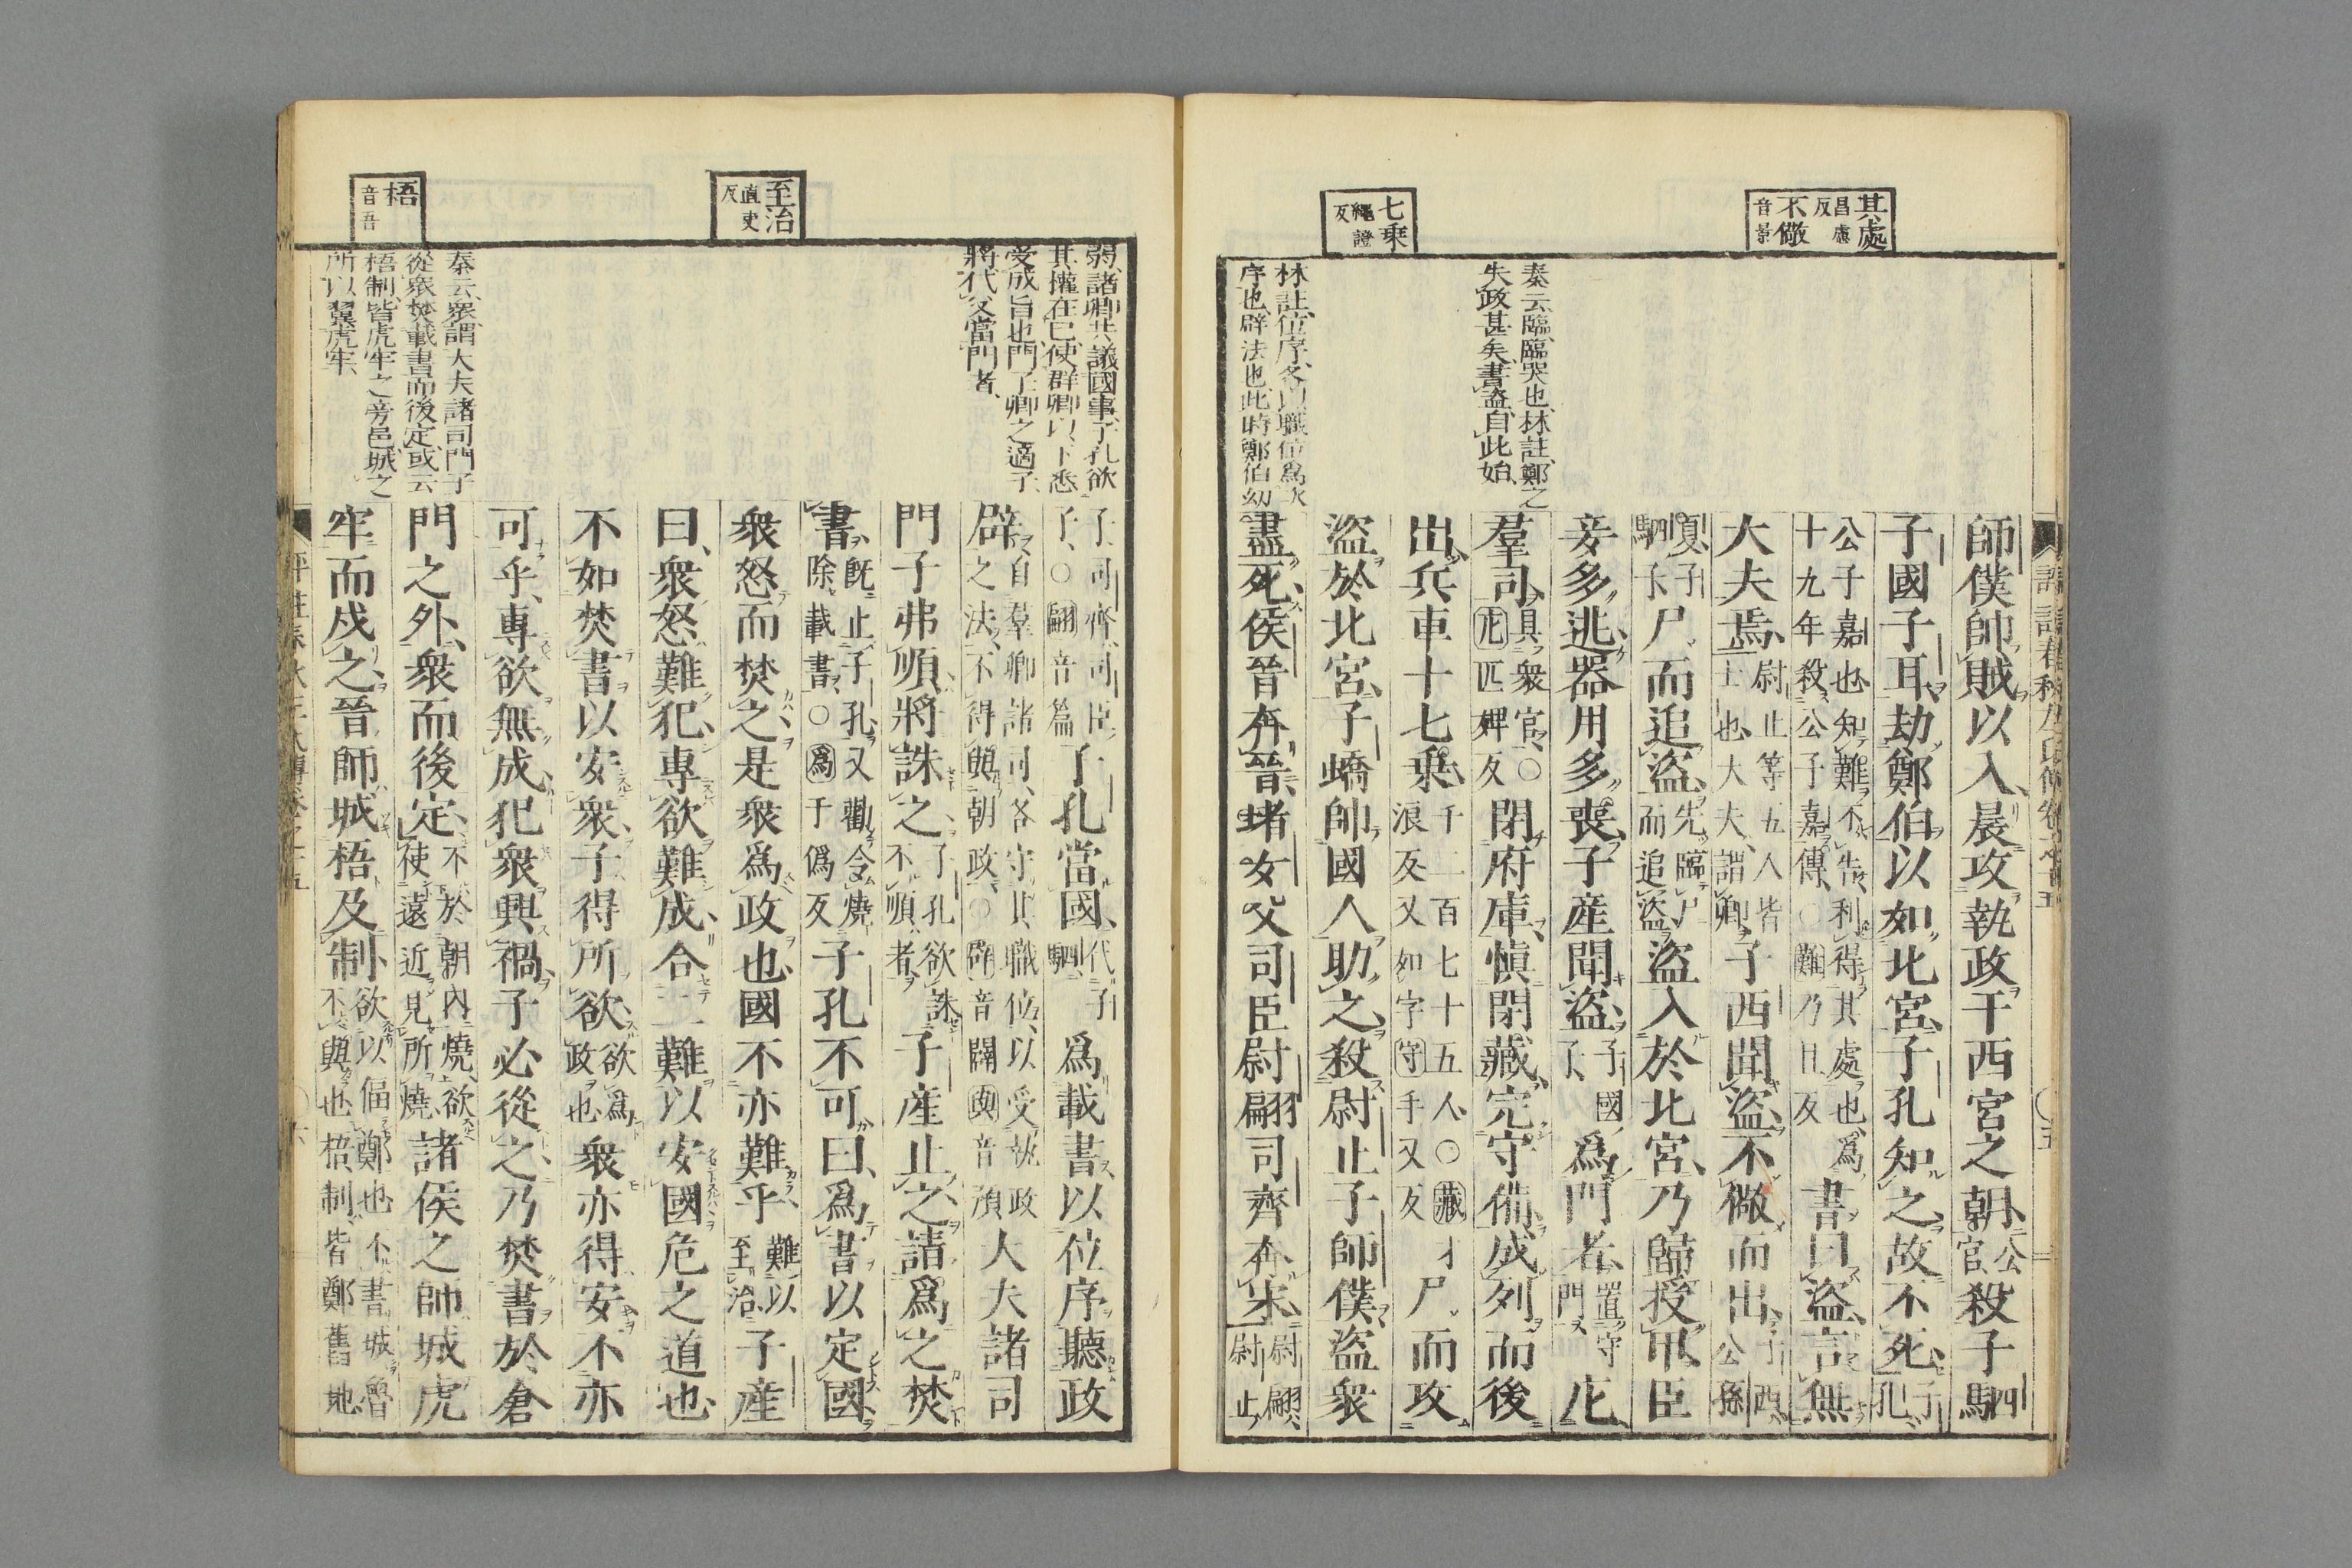 其處
昌慮
反
不儆
音景
七乗
繩證
反
秦云臨臨哭也林註鄭之
失政甚矣書盗自此始
林註位序各以職位爲次
序也辟法也此時鄭伯幼
師僕帥賊以入晨攻執政于西宮之朝公
官殺子駟
子國子耳劫鄭伯以如北宮子孔知之故不死子
孔
公子嘉也知難不告利得其處也爲
十九年殺公子嘉傳○難乃旦反
書曰盗言無
大夫焉尉止等五人皆
士也大夫謂卿
子西聞盗不儆而出子西
公孫
夏子
駟子
尸而追盗先臨尸
而追盗
盗入於北宮乃歸授甲臣
妾多逃器用多喪子産聞盗子國
子
爲門者置守
門
庀
羣司具衆官○
庀匹婢反
閉府庫愼閉藏完守備成列而後
出兵車十七乗千二百七十五人○藏才
浪反又如字守手又反
尸而攻
盗於北宮子蟜帥國人助之殺尉止子師僕盗衆
盡死侯晉奔晉堵女父司臣尉翩司齊奔宋尉翩
尉止
至治
直吏
反
梧
音吾
弱諸卿共議國事子孔欲
其權在已使群卿以下悉
受成旨也門子卿之適子
將代父當門者
秦云衆謂大夫諸司門子
從衆焚載書而後定或云
梧制皆虎牢之旁邑城之
所以翼虎牢
子司齊司臣
子○翩音篇
子孔當國代子
駟
爲載書以位序聽政
辟之自羣卿諸司各守其職位以受執政
法不得與朝政○辟音闢與音預
大夫諸司
門子弗順將誅之子孔欲誅
不順者
子産止之請爲之焚
書既止子孔又勸令燒
除載書○爲于僞反
子孔不可曰爲書以定國
衆怒而焚之是衆爲政也國不亦難乎難以
至治
子産
曰衆怒難犯專欲難成合二難以安國危之道也
不如焚書以安衆子得所欲欲爲
政也
衆亦得安不亦
可乎專欲無成犯衆興禍子必從之乃焚書於倉
門之外衆而後定不於朝內燒欲
使遠近見所燒
諸侯之師城虎
牢而戍之晉師城梧及制欲以偪鄭也不書城魯
不與也梧制皆鄭舊地